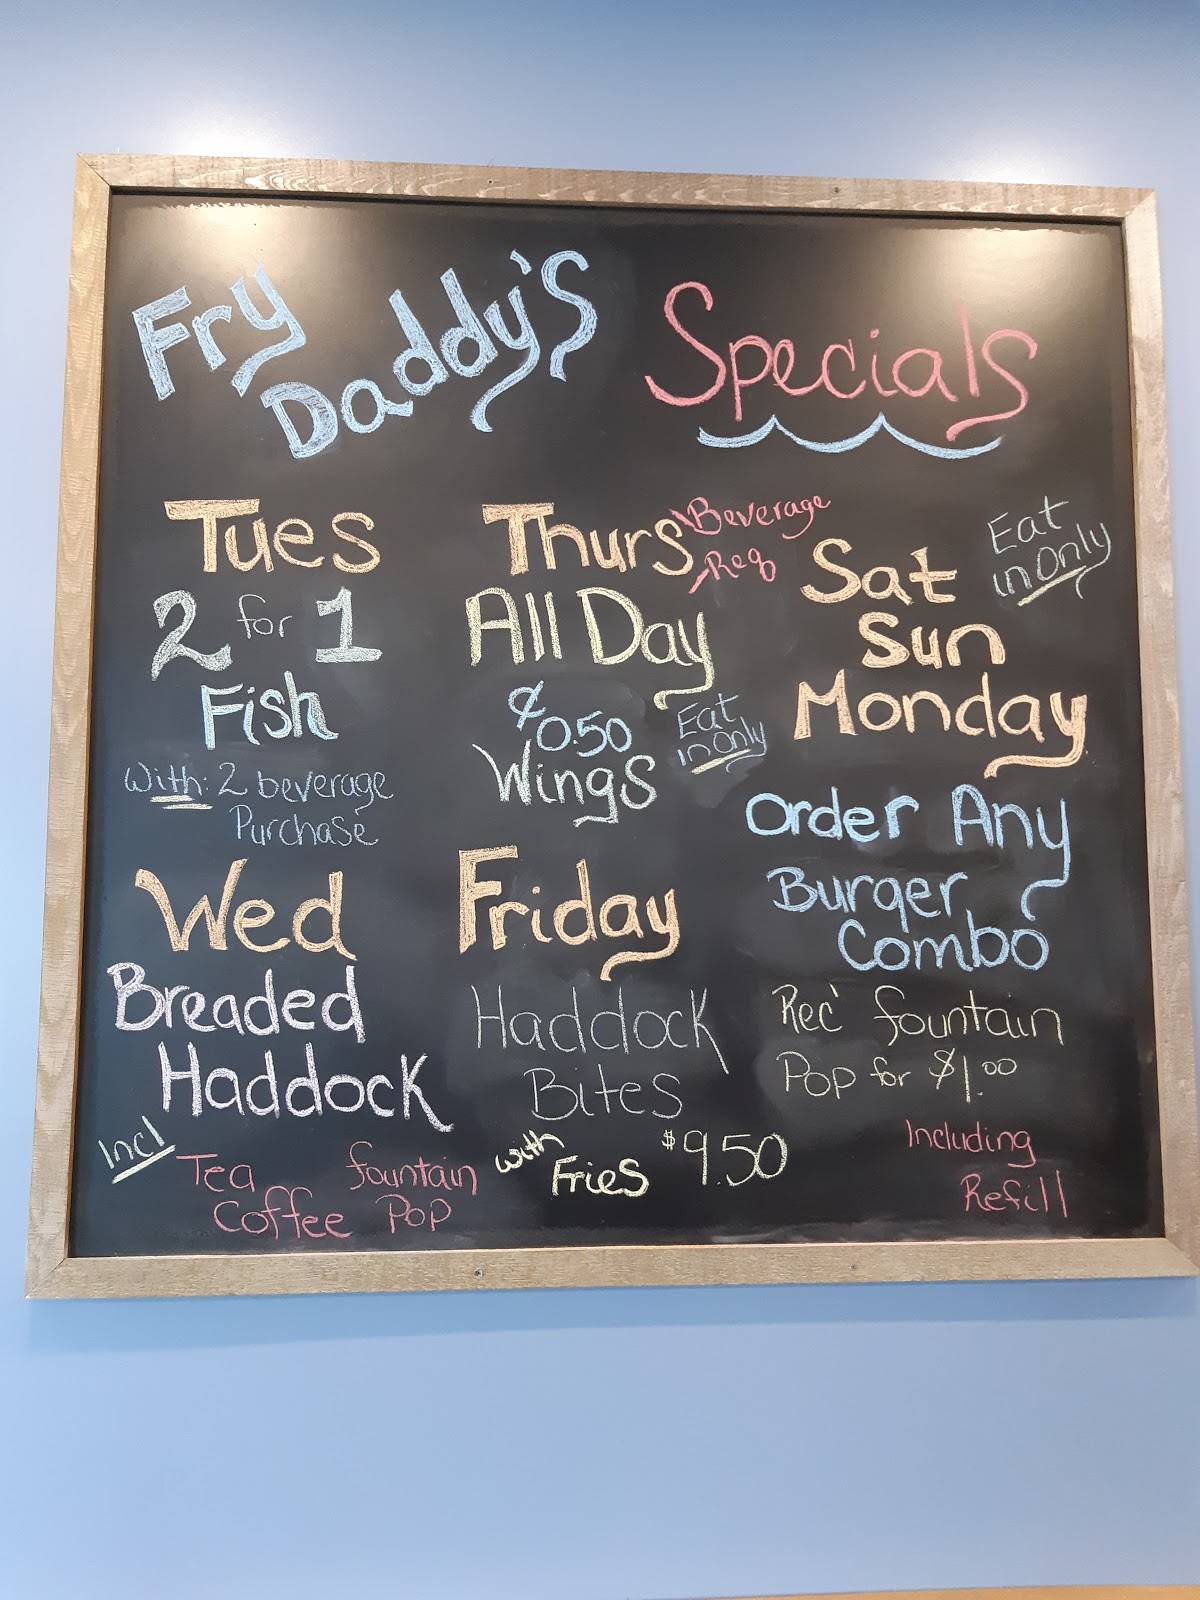 Fry Daddy's Specials
Tues
2 for 1
Fish
With: 2 beverage
Purchase
Wed
Breaded
Haddock
Incl
Tea fountain
Coffee Pop
Thurs Beverage
Req
All Day
¢0.50
Wings
Eat
in Only
Friday
Haddock
Bites
with Fries $9.50
Eat
in Only
Sat
Sun
Monday
Order Any
Burger
Combo
Rec' fountain
Pop for $1.00
Including
Refill